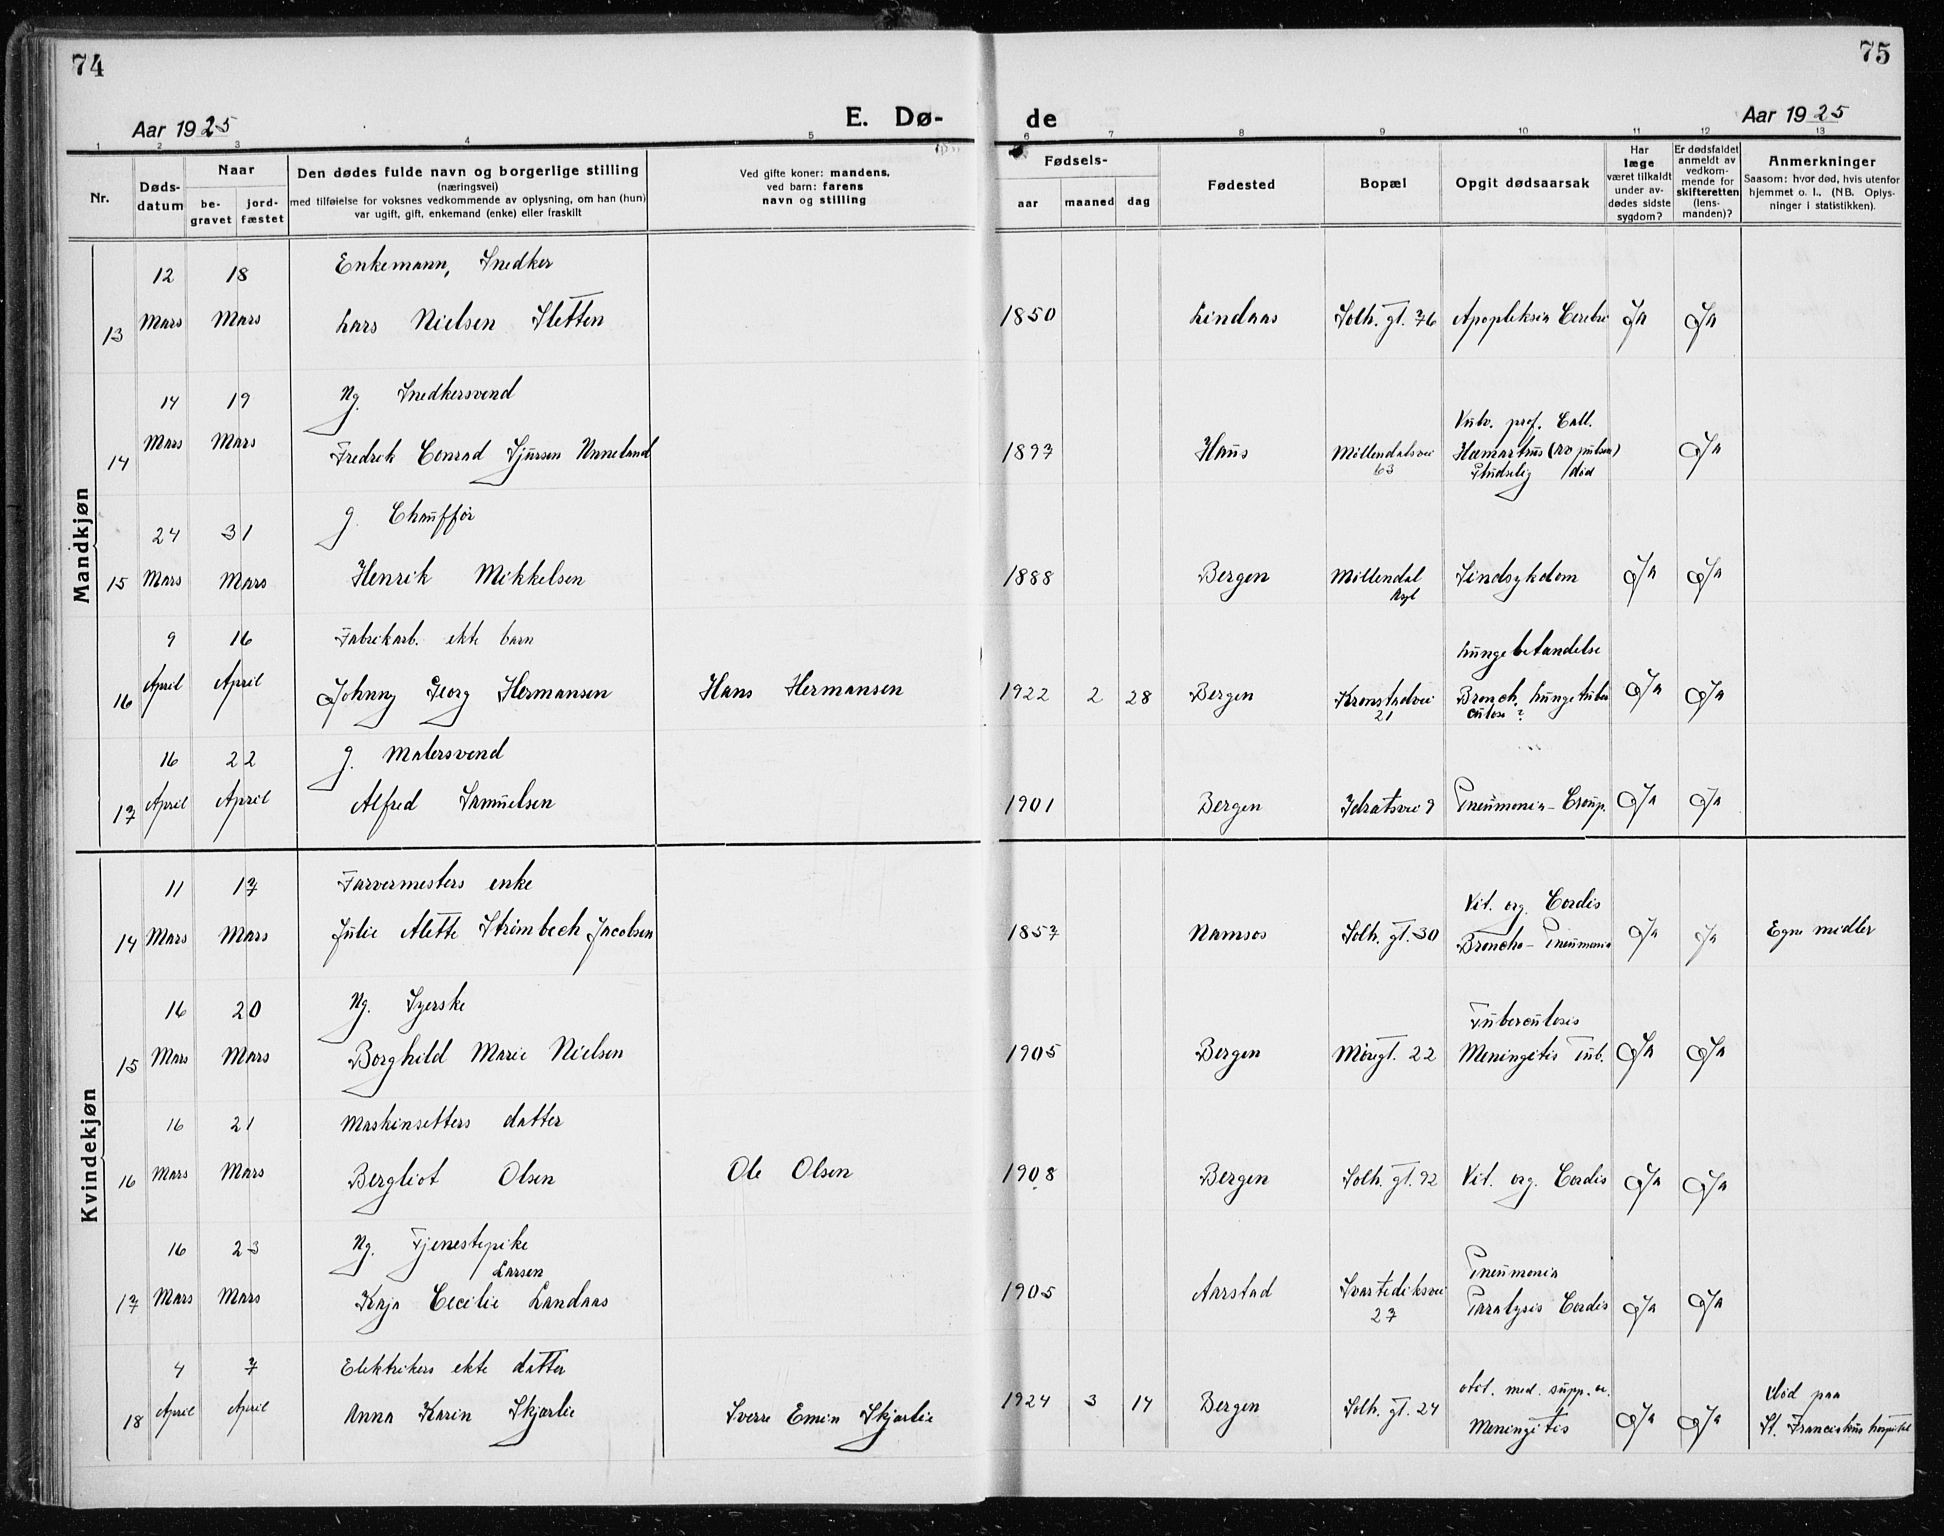 74
75
Aar 1925
E. Dø-
de
Aar 1925
1 2 3 4 5 6 7 8 9 10 11 12 13
Nr.
Døds-
datum
Naar
be-
gravet
jord-
fæstet
Den dødes fulde navn og borgerlige stilling
(næringsvei)
med tilføielse for voksnes vedkommende av oplysning, om han (hun)
var ugift, gift, enkemand (enke) eller fraskilt
Ved gifte koner: mandens,
ved barn: farens
navn og stilling
Fødsels-
aar
maaned
dag
Fødested
Bopæl
Opgit dødsaarsak
Har
læge
været tilkaldt
under av-
dødes sidste
sygdom?
Er dødsfaldet
anmeldt av
vedkom-
mende for
skifteretten
(lens-
manden)?
Anmerkninger
Saasom: hvor død, hvis utenfor
hjemmet o. l., (NB. Oplys-
ninger i statistikken).
Mandkjøn
12 18 Enkemann, Snedker
13 Mars Mars Lars Nielsen Sletten 1850 Lindaas Solh. gt. 76 Apopleksia Cerebri Ja Ja
14 19 Ug. Snedkersvend
14 Mars Mars Fredrik Conrad Sjursen Unneland 1897 Haus Møllendalsvei
63
Haemartrus
Pludselig død
Ja
24 31 g. Chauffør
15 Mars Mars Henrik Mikkelsen 1888 Bergen Møllendal
Asyl
Sindsykdom Ja Ja
9 16 Fabrikarb. ekte barn
Lungebetændelse
16 April April Johnny Georg Hermansen Hans Hermansen 1922 2 28 Bergen Kronstadvei
21
Bronch. Lungetuber
culose ?
Ja Ja
16 22 g. Malersvend
17 April April Alfred Samuelsen 1901 Bergen Idrætsvei 9 Pneumonia - Croup. Ja Ja
Kvindekjøn
11 17 Farvermesters enke
Vit. org. Cordis
14 Mars Mars Julie Alette Strømbech Jacobsen 1857 Namsos Solh. gt. 30 Broncho - Pneumonia Ja Ja Egne midler
16 20 Ug. Syerske
Tuberculosis
15 Mars Mars Borghild Marie Nielsen 1905 Bergen Møregt. 22 Meningitis Tub. Ja Ja
16 21 Maskinsetters datter
16 Mars Mars Bergliot Olsen Ole Olsen 1908 Bergen Solh. gt. 92 Vit. org. Cordis Ja Ja
16 23 Ug. Tjenestepike
Larsen
Pneumonia
17 Mars Mars Kaja Cecilie Landaas 1905 Aarstad Svartediksvei
27
Paralysis Cordis Ja Ja
4 7 Elektrikers ekte datter
otit. med. supp. ac.
Død paa
18 April April Anna Karin Skjærlie Sverre Emin Skjærlie 1924 3 14 Bergen Solh. gt. 24 Meningitis Ja Ja St. Franciskus hospital